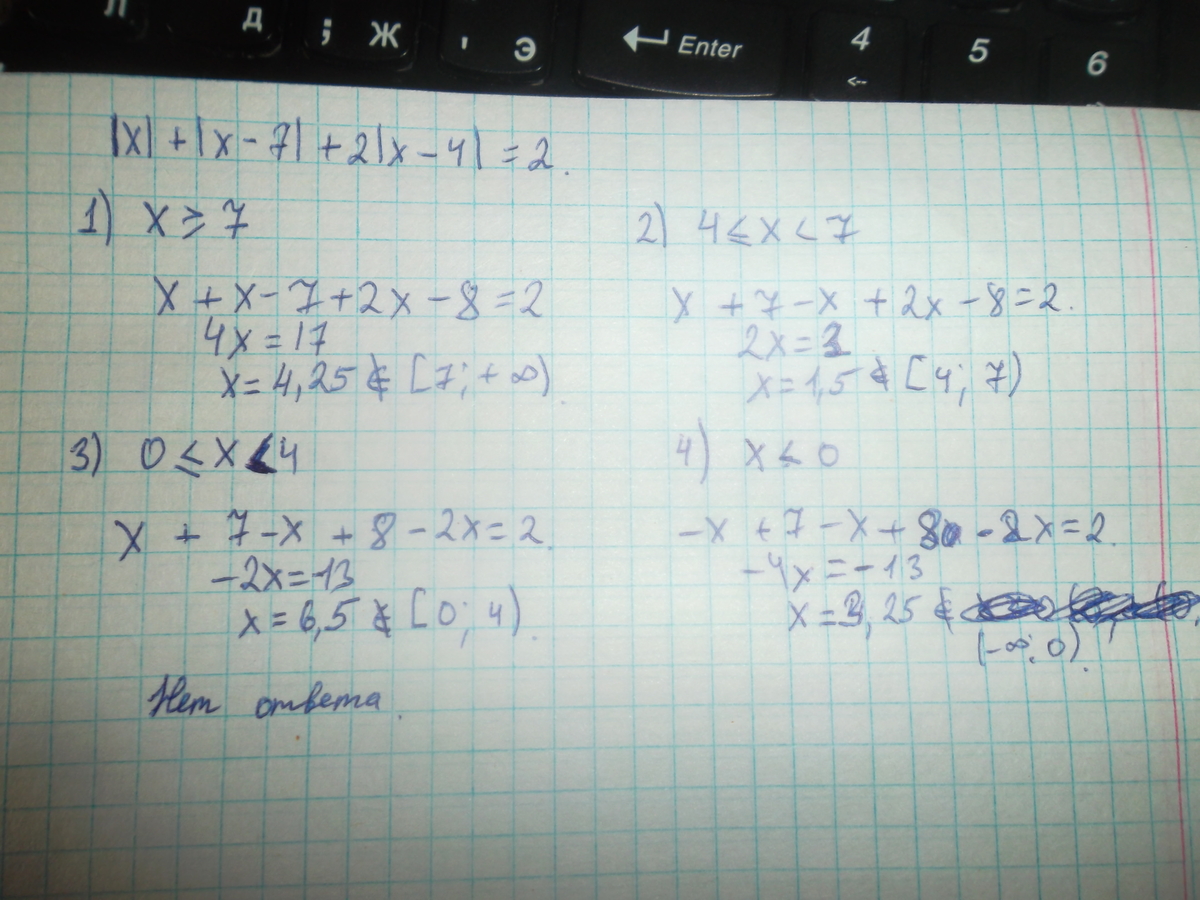 Л Д ; Ж ' Э Enter 4 5 6
|x| + |x - 7| + 2|x - 4| = 2.
1) x ≥ 7
x + x - 7 + 2x - 8 = 2
4x = 17
x = 4,25 ∉ [7; + ∞)
2) 4 ≤ x < 7
x + 7 - x + 2x - 8 = 2.
2x = 3
x = 1,5 ∉ [4; 7)
3) 0 ≤ x < 4
x + 7 - x + 8 - 2x = 2.
-2x = -13
x = 6,5 ∉ [0; 4).
4) x < 0
-x + 7 - x + 8 - 2x = 2.
-4x = -13
x = 3,25 ∉
(-∞; 0).
Нет ответа.